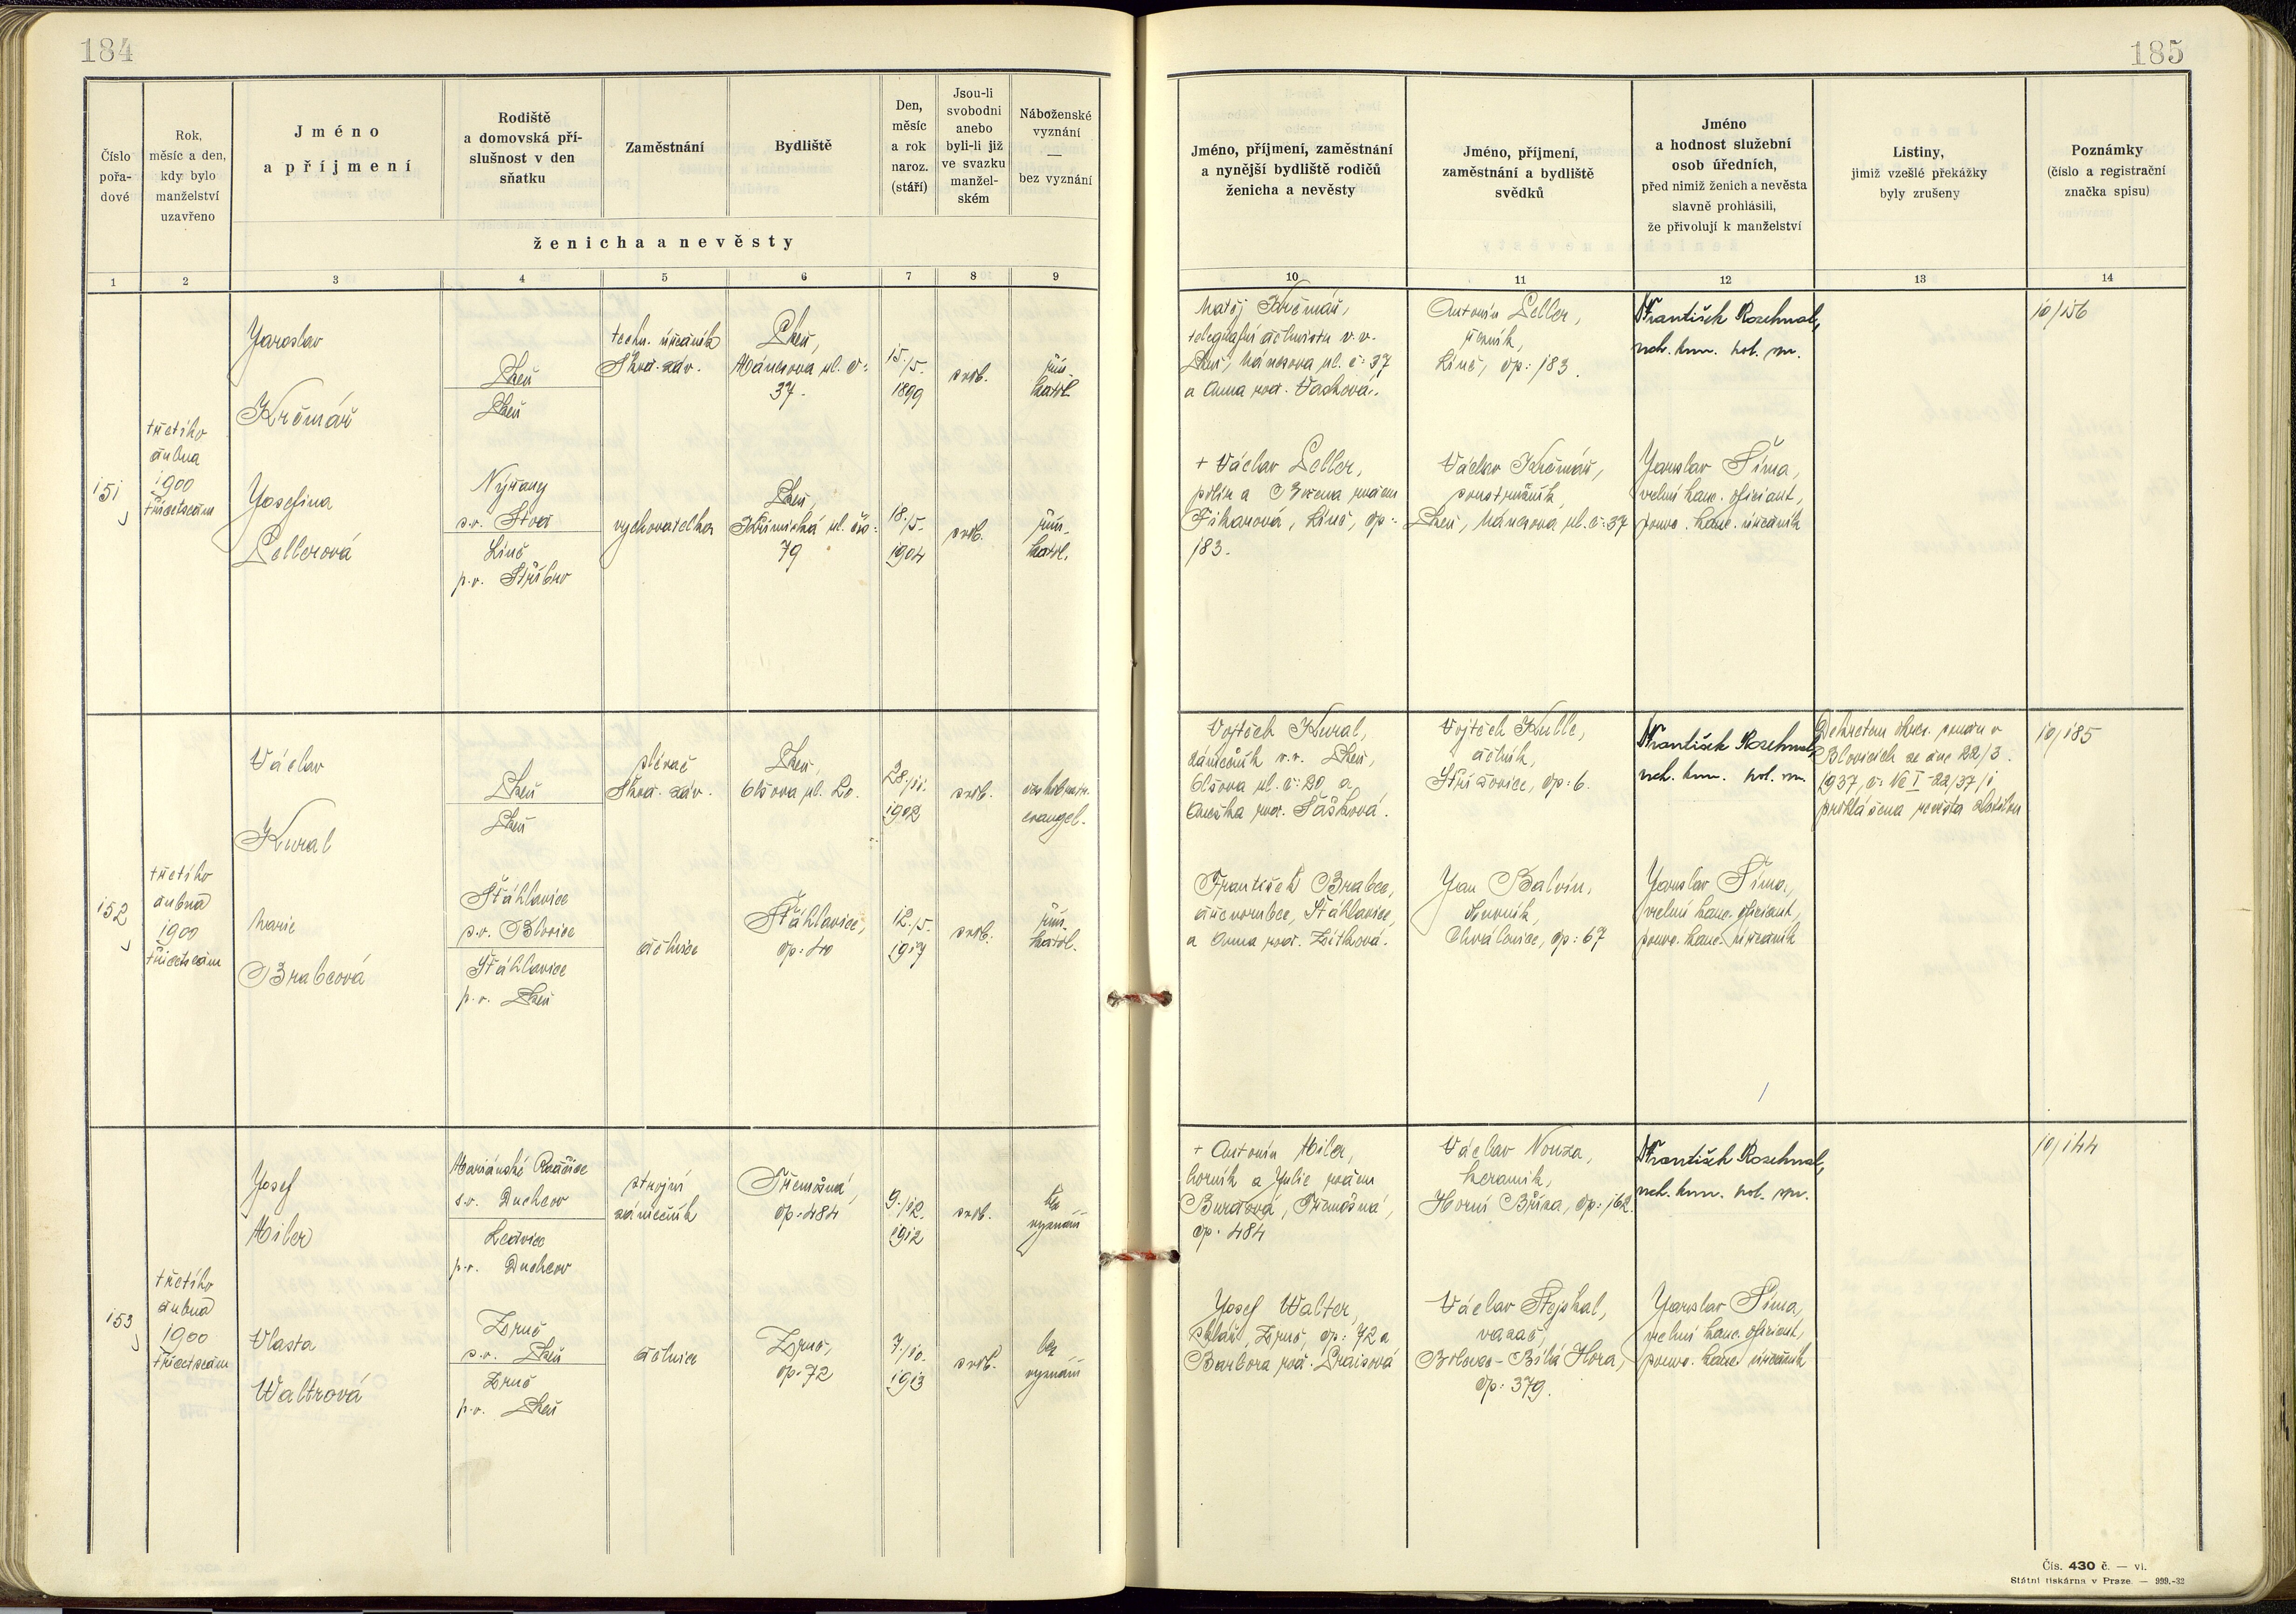 184
Číslo
pořa-
dové
Rok,
měsíc a den,
kdy bylo
manželství
uzavřeno
Jméno
a příjmení
Rodiště
a domovská pří-
slušnost v den
sňatku
Zaměstnání
Bydliště
Den,
měsíc
a rok
naroz.
(stáří)
Jsou-li
svobodni
anebo
byli-li již
ve svazku
manžel-
ském
Náboženské
vyznání
—
bez vyznání
ženicha a nevěsty
1 2 3 4 5 6 7 8 9
151
třetího
dubna
1900
třicetsedm
Jaroslav
Krčmář
Plzeň
Plzeň
techn. úředník
Škod. záv.
Plzeň,
Mánesova ul. č:
37.
15./5.
1899
svob.
řím.
katol.
Josefina
Lellerová
Nýřany
s.o. Stod
Líně
p.o. Stříbro
vychovatelka
Plzeň,
Křimická ul. čís:
79
18./5.
1904
svob.
řím.
katol.
152
třetího
dubna
1900
třicetsedm
Václav
Kural
Plzeň
Plzeň
slévač
Škod. záv.
Plzeň,
Olšova ul. 20.
28./11.
1902
svob.
českobratr.
evangel.
Marie
Brabcová
Šťáhlavice
s.o. Blovice
Šťáhlavice
p.o. Plzeň
dělnice
Šťáhlavice,
čp: 40
12./5.
1917
svob.
řím.
katol.
153
třetího
dubna
1900
třicetsedm
Josef
Miler
Mariánské Radčice
s.o. Duchcov
Ledvice
p.o. Duchcov
strojní
zámečník
Třemošná,
čp: 484
9./12.
1912
svob.
bez
vyznání
Vlasta
Waltrová
Zruč
s.o. Plzeň
Zruč
p.o. Plzeň
dělnice
Zruč,
čp: 72
7./10.
1913
svob.
bez
vyznání
185
Jméno, příjmení, zaměstnání
a nynější bydliště rodičů
ženicha a nevěsty
Jméno, příjmení,
zaměstnání a bydliště
svědků
Jméno
a hodnost služební
osob úředních,
před nimiž ženich a nevěsta
slavně prohlásili,
že přivolují k manželství
Listiny,
jimiž vzešlé překážky
byly zrušeny
Poznámky
(číslo a registrační
značka spisu)
10 11 12 13 14
Matěj Krčmář,
telegrafní dělmistr v.v.
Plzeň, Mánesova ul. č: 37
a Anna roz. Vachová.
Antonín Leller,
horník,
Líně, čp: 183.
František Rozehnal,
vrch. kom. pol. spr.
10/156
+ Václav Leller,
Líně, čp:
183.
Václav Krčmář,
soustružník,
Plzeň, Mánesova ul. č: 37
Jaroslav Šíma,
vrchní kanc. oficiant,
pověř. kanc. úředník
Vojtěch Kural,
zámečník v.v. Plzeň,
Olšova ul. č: 20, a
Anežka roz. Šašková.
Vojtěch Kulle,
dělník,
Střížovice, čp: 6.
František Rozehnal,
vrch. kom. pol. spr.
Dekretem okres. soudu v
Blovicích ze dne 22/3.
1937, č:
prohlášena nevěsta zletilou
10/185
František Brabec,
Šťáhlavice,
a Anna roz. Zítková.
Jan Balvín,
Chválenice, čp: 67
Jaroslav Šíma,
vrchní kanc. oficiant,
pověř. kanc. úředník
+ Antonín Miler,
horník a Julie rozen
Burdová, Třemošná,
čp: 484
Václav Nouza,
keramik,
Horní Bříza, čp: 162.
František Rozehnal,
vrch. kom. pol. spr.
10/144
Josef Walter,
Zruč, čp: 72 a
Barbora roz. Praisová
Václav Stejskal,
vazač,
Bolevec - Bílá Hora,
čp: 379.
Jaroslav Šíma,
vrchní kanc. oficiant,
pověř. kanc. úředník
Čís. 430 č. — vl.
Státní tiskárna v Praze. — 999.-32